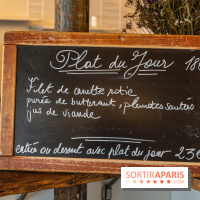 Plat du Jour 18€
Filet de canette rôtie
purée de butternut, pleurotes sautés
jus de viande
entrée ou dessert avec plat du jour 23€
SORTIRAPARIS